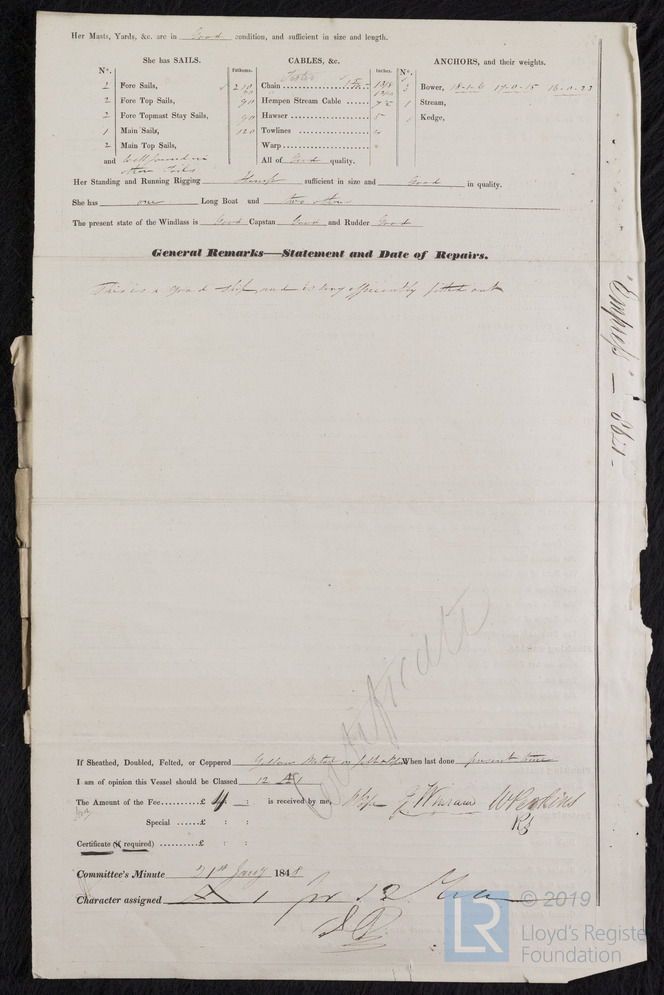 Her Masts, Yards, &c. are in Good condition, and sufficient in size and length.
She has SAILS.
CABLES, &c.
ANCHORS, and their weights.
N°.
Fathoms.
Inches.
N°.
2 Fore Sails,
Chain
Bower, 18-1-6 17-0-15 16-0-23
2 Fore Top Sails, 90
Hempen Stream Cable
1 Stream,
2 Fore Topmast Stay Sails, 90
Hawser
1 Kedge,
1 Main Sails, 120
Towlines
2 Main Top Sails,
Warp
and Well found in other Sails
All of Good quality.
Her Standing and Running Rigging Hemp sufficient in size and Good in quality.
She has one Long Boat and two others
The present state of the Windlass is Good Capstan Good and Rudder Good
General Remarks—Statement and Date of Repairs.
This is a good ship and is very efficiently fitted out
Empress
Certificate
If Sheathed, Doubled, Felted, or Coppered Yellow Metal When last done present time
I am of opinion this Vessel should be Classed 12 A1
The Amount of the Fee.........£ 4 : — : is received by me,
Special ......£ : :
Certificate (if required) ......£ : :
Committee's Minute 21st Jany 1848
Character assigned A 1 for 12 Yrs
LR © 2019
Lloyd's Registe
Foundation